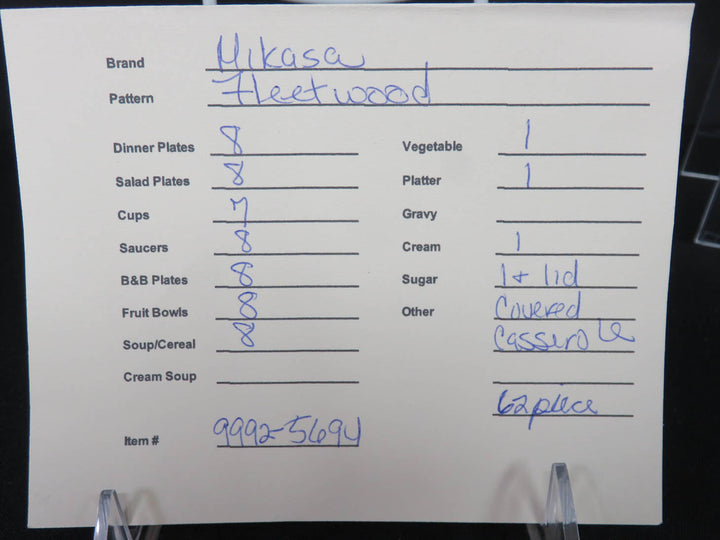 Brand Mikasa
Pattern Fleetwood
Dinner Plates 8 Vegetable 1
Salad Plates 8 Platter 1
Cups 7 Gravy
Saucers 8 Cream 1
B&B Plates 8 Sugar 1 + lid
Fruit Bowls 8 Other Covered
Soup/Cereal 8 Casserole
Cream Soup
62 piece
Item # 9992-5694